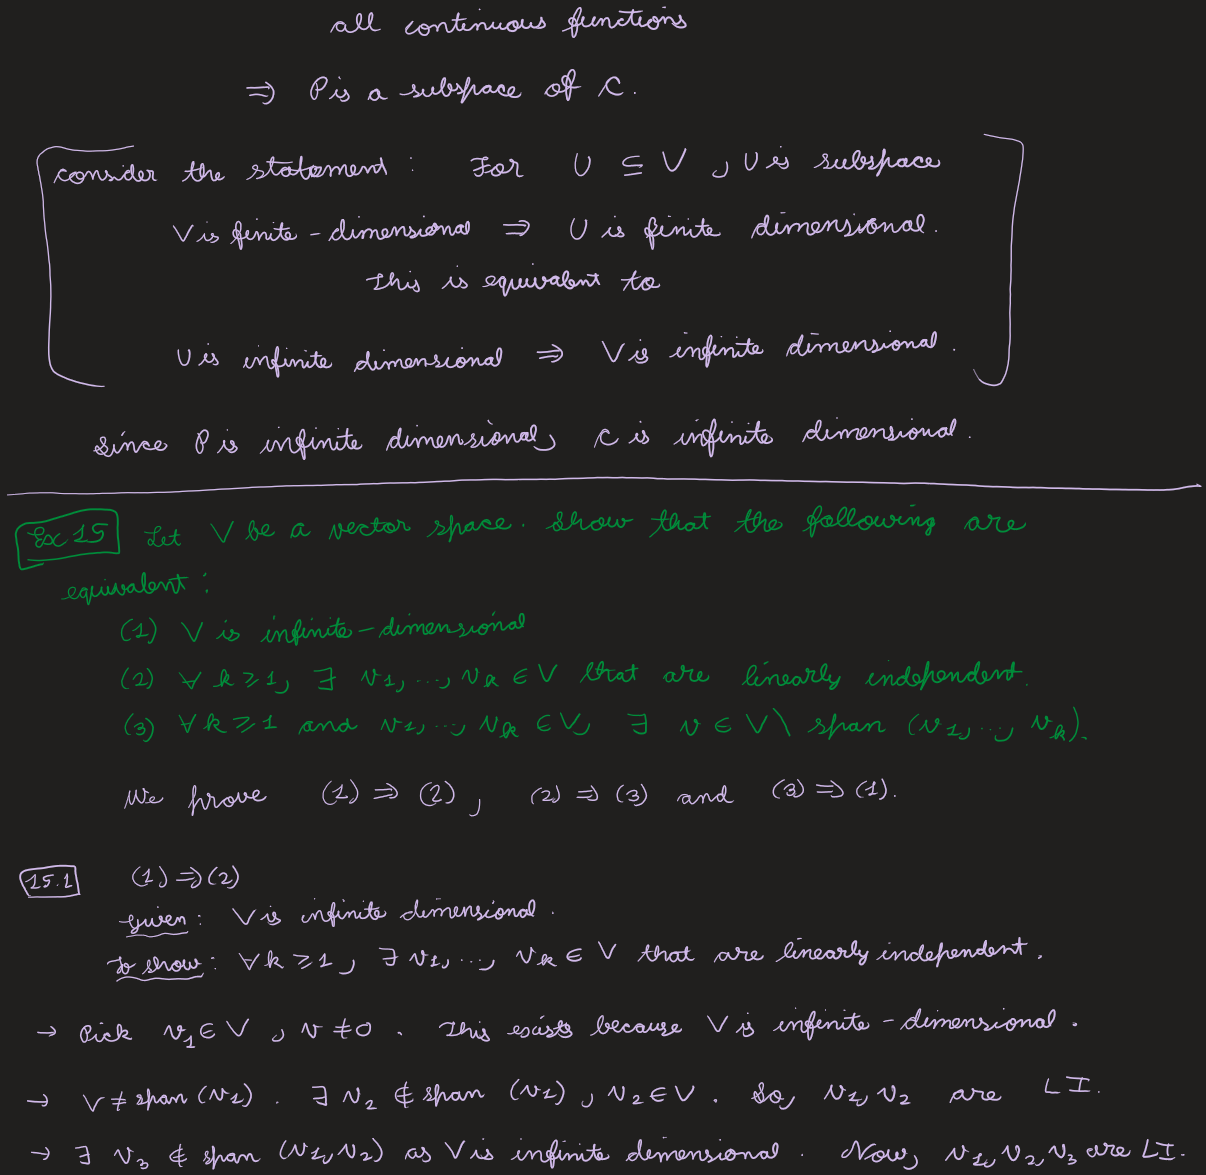 all continuous functions
⇒ P is a subspace of C.
consider the statement : For U ⊆ V , U is subspace
V is finite-dimensional ⇒ U is finite dimensional.
This is equivalent to
U is infinite dimensional ⇒ V is infinite dimensional.
Since P is infinite dimensional, C is infinite dimensional.
Ex 15 Let V be a vector space. Show that the following are
equivalent :
(1) V is infinite-dimensional
(2) ∀ k ≥ 1, ∃ v1, ..., vk ∈ V that are linearly independent.
(3) ∀ k ≥ 1 and v1, ..., vk ∈ V, ∃ v ∈ V \ span (v1, ..., vk).
We prove (1) ⇒ (2) , (2) ⇒ (3) and (3) ⇒ (1).
15.1 (1) ⇒ (2)
Given : V is infinite dimensional.
To show : ∀ k ≥ 1 , ∃ v1, ..., vk ∈ V that are linearly independent.
→ Pick v1 ∈ V , v ≠ 0 . This exists because V is infinite-dimensional.
→ V ≠ span (v1) . ∃ v2 ∉ span (v1) , v2 ∈ V . So, v1, v2 are LI.
→ ∃ v3 ∉ span (v1, v2) as V is infinite dimensional . Now, v1, v2, v3 are LI.